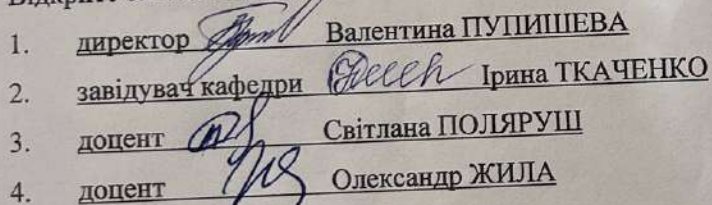 1. директор Валентина ПУПИШЕВА
2. завідувач кафедри Ірина ТКАЧЕНКО
3. доцент Світлана ПОЛЯРУШ
4. доцент Олександр ЖИЛА